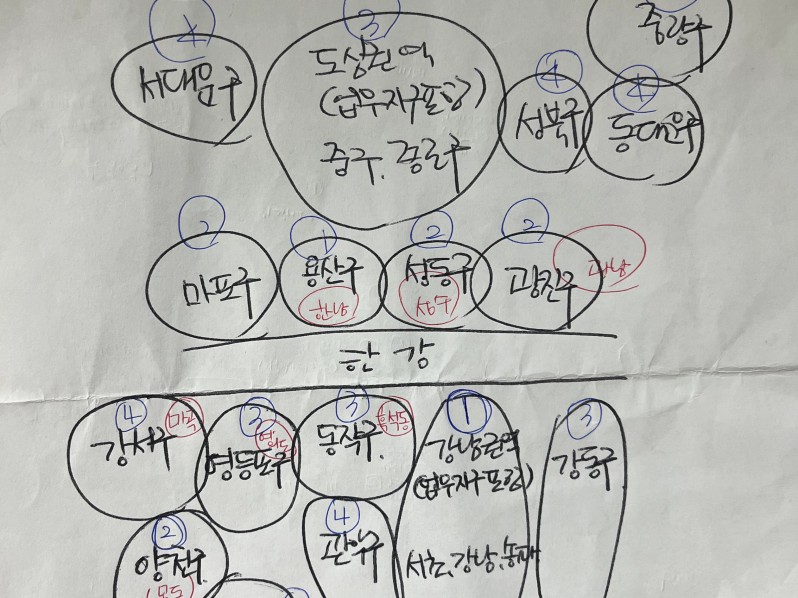 4
서대문구
3
도심권역
(업무지구포함)
중구.종로구
4
성북구
4
동대문구
중랑구
2
마포구
1
용산구
한남
2
성동구
성수
2
광진구
한강
4
마곡
강서구
3
여의도
영등포구
3
흑석동
동작구.
1
강남권역
(업무지구포함)
서초.강남.송파
3
강동구
2
양천구
4
관악구